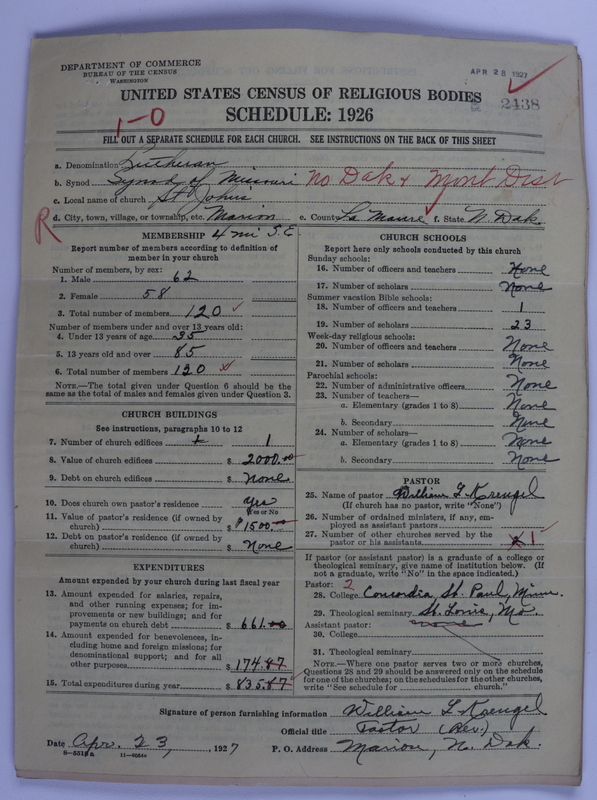 DEPARTMENT OF COMMERCE
BUREAU OF THE CENSUS
WASHINGTON
APR 28 1927
UNITED STATES CENSUS OF RELIGIOUS BODIES
2438
SCHEDULE: 1926
1-0
FILL OUT A SEPARATE SCHEDULE FOR EACH CHURCH. SEE INSTRUCTIONS ON THE BACK OF THIS SHEET
a. Denomination Lutheran
b. Synod Synod of Missouri No Dak & Mont Dist
c. Local name of church St. Johns
R
d. City, town, village, or township, etc. Marion e. County La Moure f. State N. Dak.
4 mi S.E.
MEMBERSHIP
Report number of members according to definition of
member in your church
Number of members, by sex:
1. Male 62
2. Female 58
3. Total number of members 120
Number of members under and over 13 years old:
4. Under 13 years of age 35
5. 13 years old and over 85
6. Total number of members 120
NOTE.—The total given under Question 6 should be
same as the total of males and females given under Question 3.
CHURCH BUILDINGS
See instructions, paragraphs 10 to 12
7. Number of church edifices 1
8. Value of church edifices $ 2000.00
9. Debt on church edifices $ None
10. Does church own pastor's residence yes
Yes or No
11. Value of pastor's residence (if owned by
church) $ 1500.00
12. Debt on pastor's residence (if owned by
church) $ None
EXPENDITURES
Amount expended by your church during last fiscal year
13. Amount expended for salaries, repairs,
and other running expenses; for im-
provements or new buildings; and for
payments on church debt $ 661.00
14. Amount expended for benevolences, in-
cluding home and foreign missions; for
denominational support; and for all
other purposes $ 174.87
15. Total expenditures during year $ 835.87
CHURCH SCHOOLS
Report here only schools conducted by this church
Sunday schools:
16. Number of officers and teachers None
17. Number of scholars None
Summer vacation Bible schools:
18. Number of officers and teachers 1
19. Number of scholars 23
Week-day religious schools:
20. Number of officers and teachers None
21. Number of scholars None
Parochial schools:
22. Number of administrative officers None
23. Number of teachers—
a. Elementary (grades 1 to 8) None
b. Secondary None
24. Number of scholars—
a. Elementary (grades 1 to 8) None
b. Secondary None
PASTOR
25. Name of pastor William L Krengel
(If church has no pastor, write "None")
26. Number of ordained ministers, if any, em-
ployed as assistant pastors
27. Number of other churches served by the
pastor or his assistants 1
If pastor (or assistant pastor) is a graduate of a college or
theological seminary, give name of institution below. (If
not a graduate, write "No" in the space indicated.)
Pastor: 2
28. College Concordia St. Paul, Minn.
29. Theological seminary St. Louis, Mo.
Assistant pastor: none
30. College
31. Theological seminary
NOTE.—Where one pastor serves two or more churches,
Questions 28 and 29 should be answered only on the schedule
for one of the churches; on the schedules for the other churches,
write "See schedule for church."
Signature of person furnishing information William L Krengel
Official title Pastor (Rev.)
Date Apr. 23, 1927 P. O. Address Marion, N. Dak.